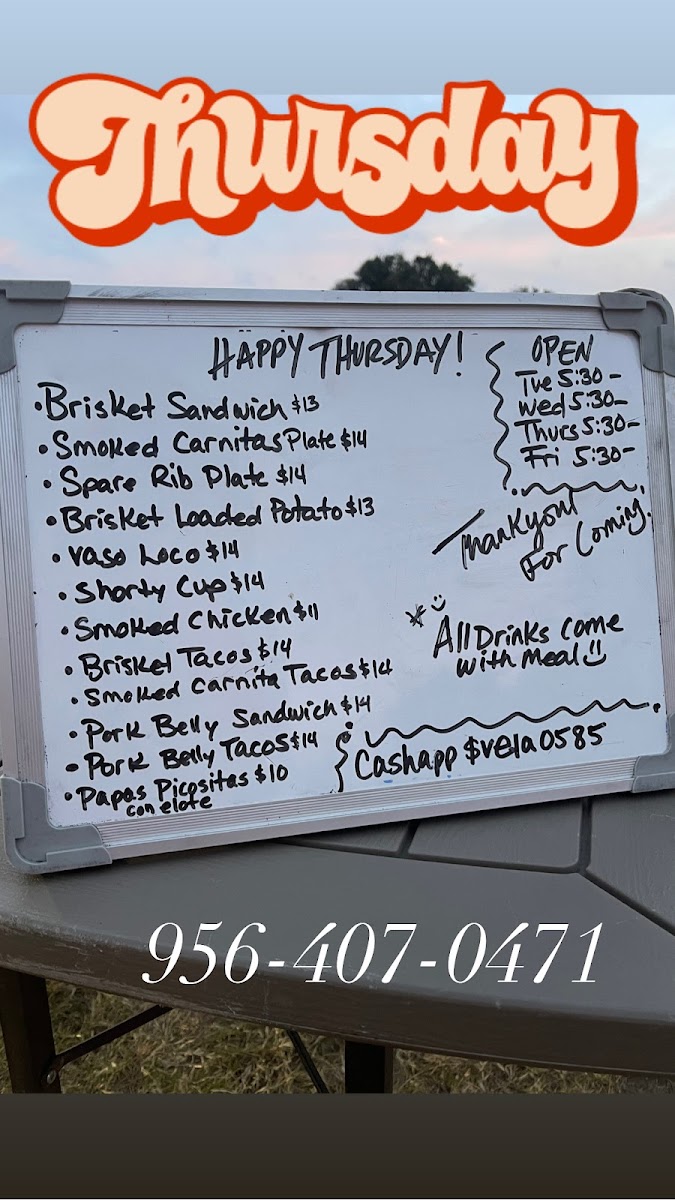 Thursday
HAPPY THURSDAY!
• Brisket Sandwich $13
• Smoked Carnitas Plate $14
• Spare Rib Plate $14
• Brisket Loaded Potato $13
• Vaso Loco $14
• Shorty Cup $14
• Smoked Chicken $11
• Brisket Tacos $14
• Smoked Carnita Tacos $14
• Pork Belly Sandwich $14
• Pork Belly Tacos $14
• Papas Picositas $10
con elote
OPEN
Tue 5:30-
Wed 5:30-
Thurs 5:30-
Fri 5:30-
Thank you!
For Coming!
All Drinks Come
with Meal
Cashapp $vela0585
956-407-0471